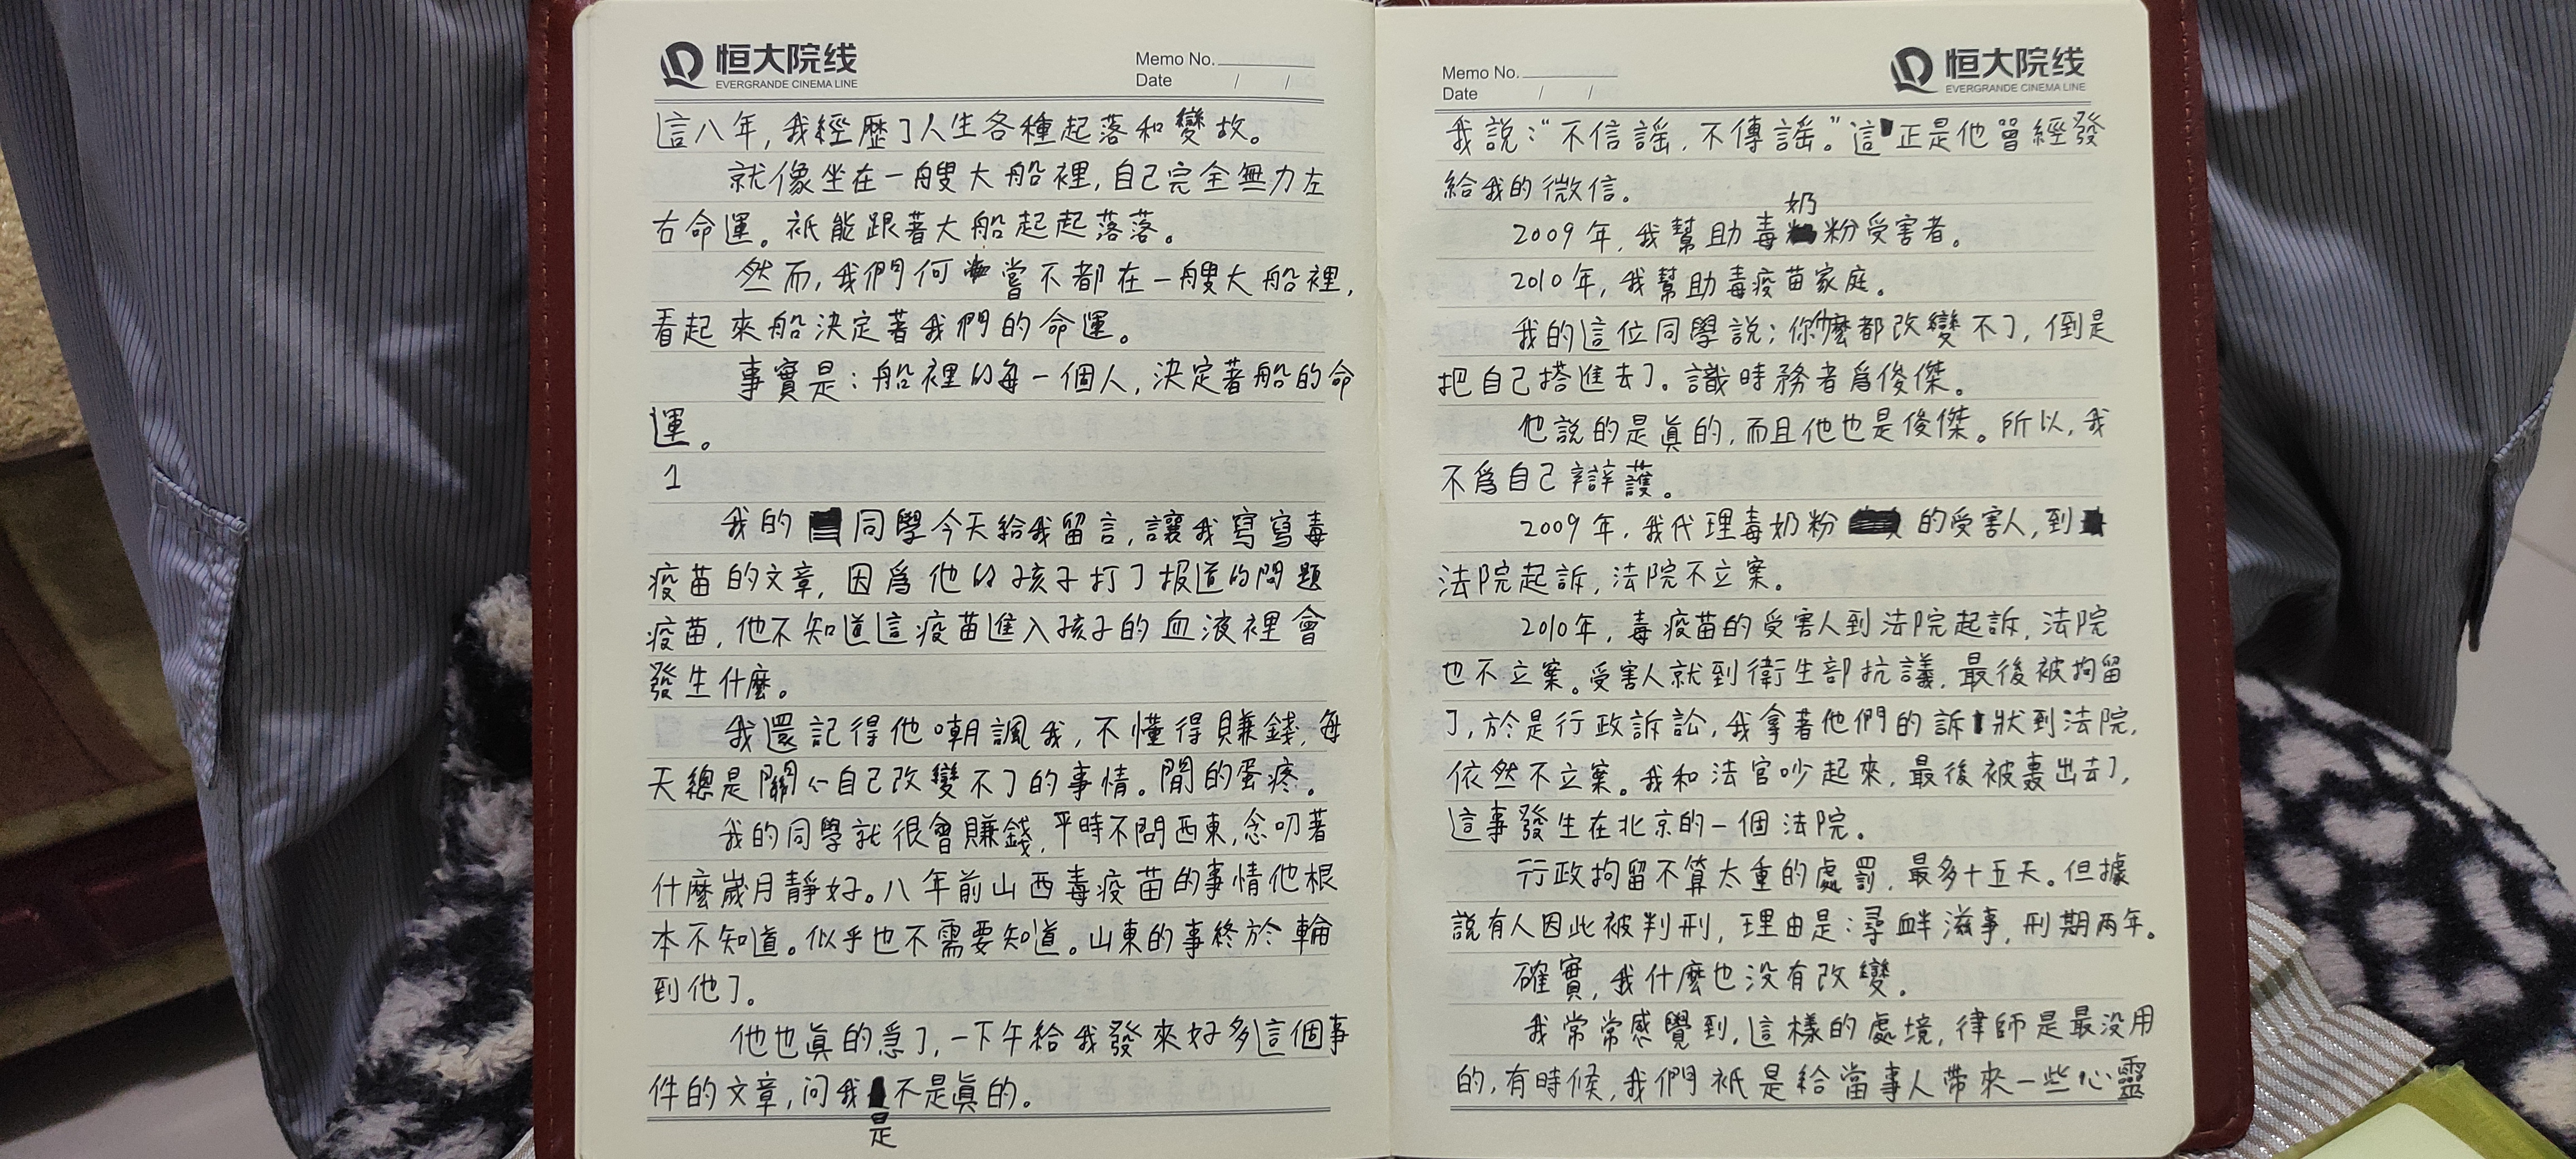 恒大院线
EVERGRANDE CINEMA LINE
Memo No.
Date / /
這八年,我經歷了人生各種起落和變故。
就像坐在一艘大船裡,自己完全無力左
右命運。祇能跟著大船起起落落。
然而,我們何嘗不都在一艘大船裡,
看起來船決定著我們的命運。
事實是:船裡的每一個人,決定著船的命
運。
1
我的同學今天給我留言,讓我寫寫毒
疫苗的文章,因爲他的孩子打了报道的問題
疫苗,他不知道這疫苗進入孩子的血液裡會
發生什麼。
我還記得他嘲諷我,不懂得賺錢,每
天總是關心自己改變不了的事情。閒的蛋疼。
我的同學就很會賺錢,平時不問西東,念叨著
什麼歲月靜好。八年前山西毒疫苗的事情他根
本不知道。似乎也不需要知道。山東的事終於輪
到他了。
他也眞的急了,一下午給我發來好多這個事
件的文章,问我是不是眞的。
Memo No.
Date / /
恒大院线
EVERGRANDE CINEMA LINE
我說:“不信謠,不傳謠。”這正是他曾經發
給我的微信。
2009年,我幫助毒奶粉受害者。
2010年,我幫助毒疫苗家庭。
我的這位同學說:你什麼都改變不了,倒是
把自己搭進去了。識時務者爲俊傑。
他説的是眞的,而且他也是俊傑。所以,我
不爲自己辯護。
2009年,我代理毒奶粉的受害人,到
法院起訴,法院不立案。
2010年,毒疫苗的受害人到法院起訴,法院
也不立案。受害人就到衛生部抗議,最後被拘留
了,於是行政訴訟,我拿著他們的訴狀到法院,
依然不立案。我和法官吵起來,最後被轟出去了,
這事發生在北京的一個法院。
行政拘留不算太重的處罰,最多十五天。但據
説有人因此被判刑,理由是:尋衅滋事,刑期两年。
確實,我什麼也没有改變。
我常常感覺到,這樣的處境,律師是最没用
的,有時候,我們祇是給當事人帶來一些心靈